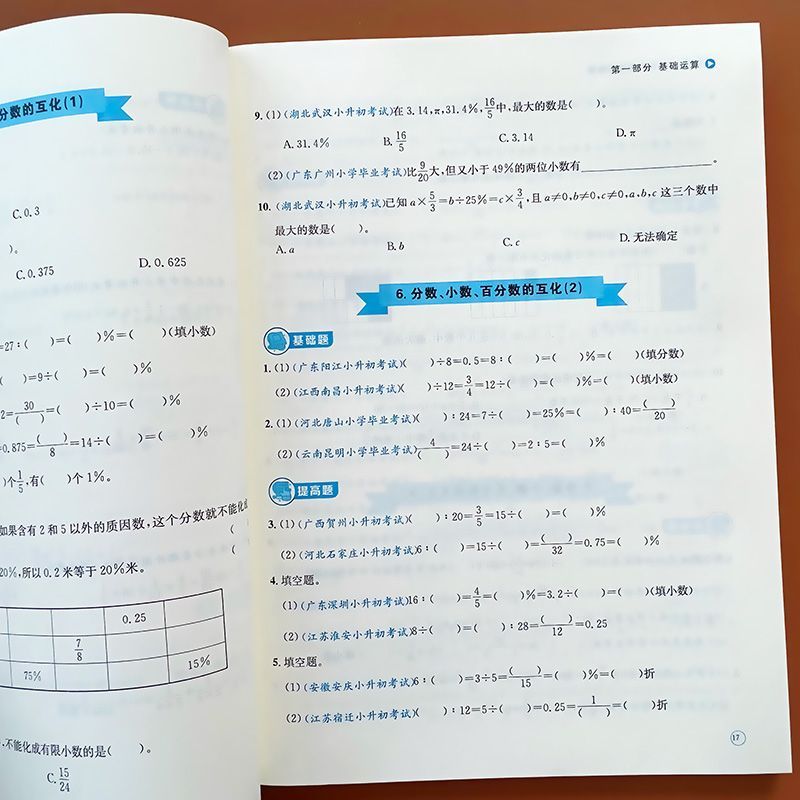 分数的互化(1)
C.0.3
)。
C.0.375 D.0.625
=27∶( )=( )%=( )(填小数)
( )=9÷( )=( )%
2=30/( )=( )÷10=( )%
=0.875=( )/8=14÷( )=( )%
)个1/5,有( )个1%。
如果含有2和5以外的质因数,这个分数就不能化成
(
20%,所以0.2米等于20%米。 (
0.25
7/8
75% 15%
,不能化成有限小数的是( )。
C.15/24
第一部分 基础运算
9.(1)(湖北武汉小升初考试)在3.14,π,31.4%,16/5中,最大的数是( )。
A.31.4% B.16/5 C.3.14 D.π
(2)(广东广州小学毕业考试)比9/20大,但又小于49%的两位小数有 。
10.(湖北武汉小升初考试)已知a×5/3=b÷25%=c×3/4,且a≠0,b≠0,c≠0,a,b,c这三个数中
最大的数是( )。
A.a B.b C.c D.无法确定
6.分数、小数、百分数的互化(2)
基础题
1.(1)(广东阳江小升初考试)( )÷8=0.5=8∶( )=( )=( )%=( )(填分数)
(2)(江西南昌小升初考试)( )÷12=3/4=12÷( )=( )%=( )(填小数)
2.(1)(河北唐山小学毕业考试)( )∶24=7÷( )=25%=( )∶40=( )/20
(2)(云南昆明小学毕业考试)4/( )=24÷( )=2∶5=( )%
提高题
3.(1)(广西贺州小升初考试)( )∶20=3/5=15÷( )=( )%
(2)(河北石家庄小升初考试)6∶( )=15÷( )=( )/32=0.75=( )%
4.填空题。
(1)(广东深圳小升初考试)16∶( )=4/5=( )%=3.2÷( )=( )(填小数)
(2)(江苏淮安小升初考试)8÷( )=( )∶28=( )/12=0.25
5.填空题。
(1)(安徽安庆小升初考试)6∶( )=3÷5=( )/15=( )%=( )折
(2)(江苏宿迁小升初考试)( )∶12=5÷( )=0.25=1/( )=( )折
17